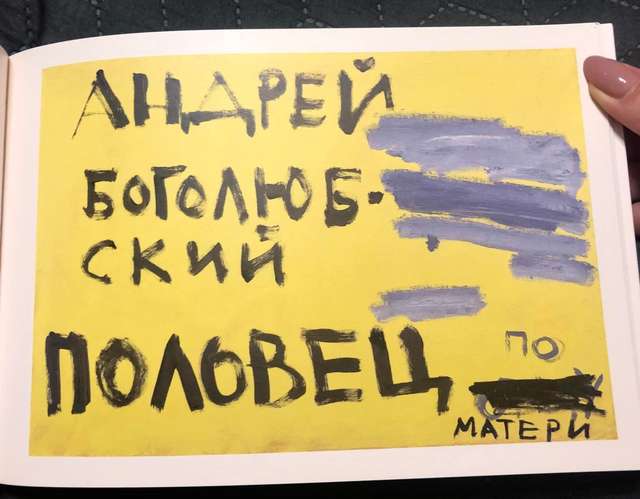 АНДРЕЙ
БОГОЛЮБ-
СКИЙ
ПОЛОВЕЦ ПО
МАТЕРИ